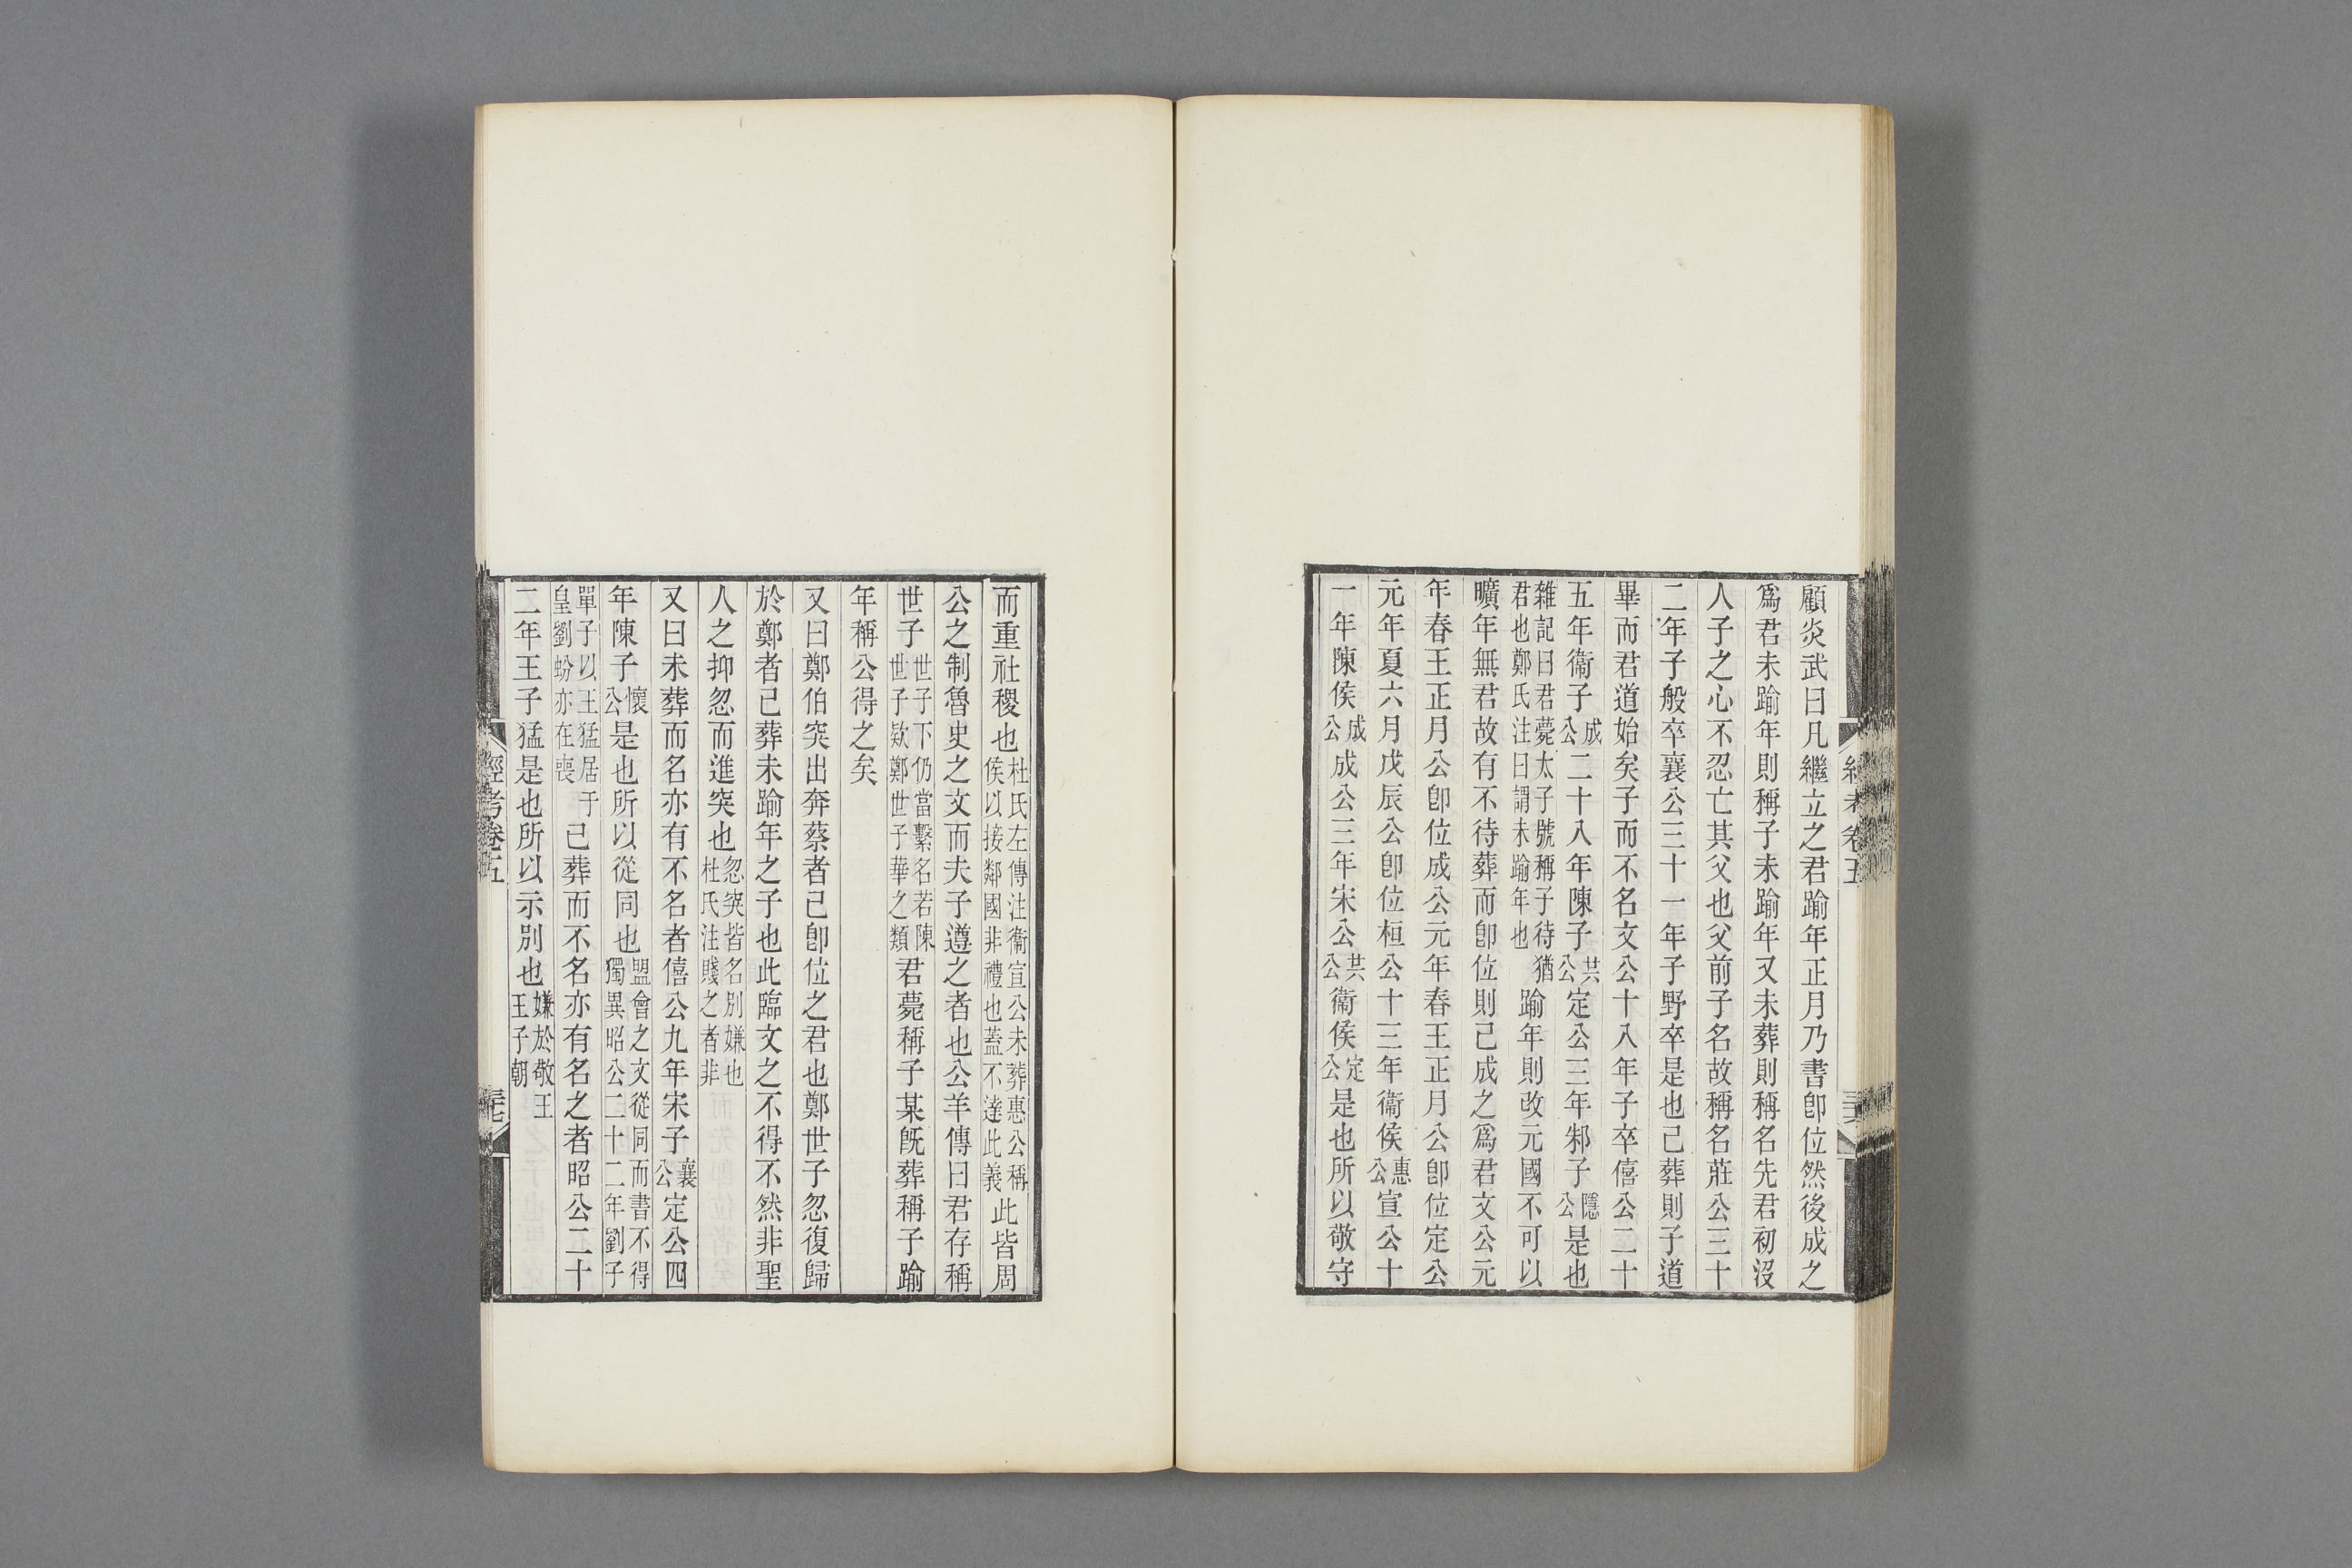 顧炎武曰凡繼立之君踰年正月乃書卽位然後成之
爲君未踰年則稱子未踰年又未葬則稱名先君初沒
人子之心不忍亡其父也父前子名故稱名莊公三十
二年子般卒襄公三十一年子野卒是也已葬則子道
畢而君道始矣子而不名文公十八年子卒僖公二十
五年衞子成公二十八年陳子共公定公三年邾子隱公是也
雜記曰君薨太子號稱子待猶
君也鄭氏注曰謂未踰年也
踰年則改元國不可以
曠年無君故有不待葬而卽位則已成之爲君文公元
年春王正月公卽位成公元年春王正月公卽位定公
元年夏六月戊辰公卽位桓公十三年衞侯惠公宣公十
一年陳侯成公成公三年宋公共公衞侯定公是也所以敬守
經考卷五
而重社稷也杜氏左傳注衞宣公未葬惠公稱
侯以接鄰國非禮也蓋不達此義此皆周
公之制魯史之文而夫子遵之者也公羊傳曰君存稱
世子世子下仍當繫名若陳
世子款鄭世子華之類君薨稱子某旣葬稱子踰
年稱公得之矣
又曰鄭伯突出奔蔡者已卽位之君也鄭世子忽復歸
於鄭者已葬未踰年之子也此臨文之不得不然非聖
人之抑忽而進突也忽突皆名別嫌也
杜氏注賤之者非
又曰未葬而名亦有不名者僖公九年宋子襄公定公四
年陳子懷公是也所以從同也盟會之文從同而書不得
獨異昭公二十二年劉子
單子以王猛居于
皇劉蚡亦在喪
已葬而不名亦有名之者昭公二十
二年王子猛是也所以示別也嫌於敬王
王子朝
經考卷五